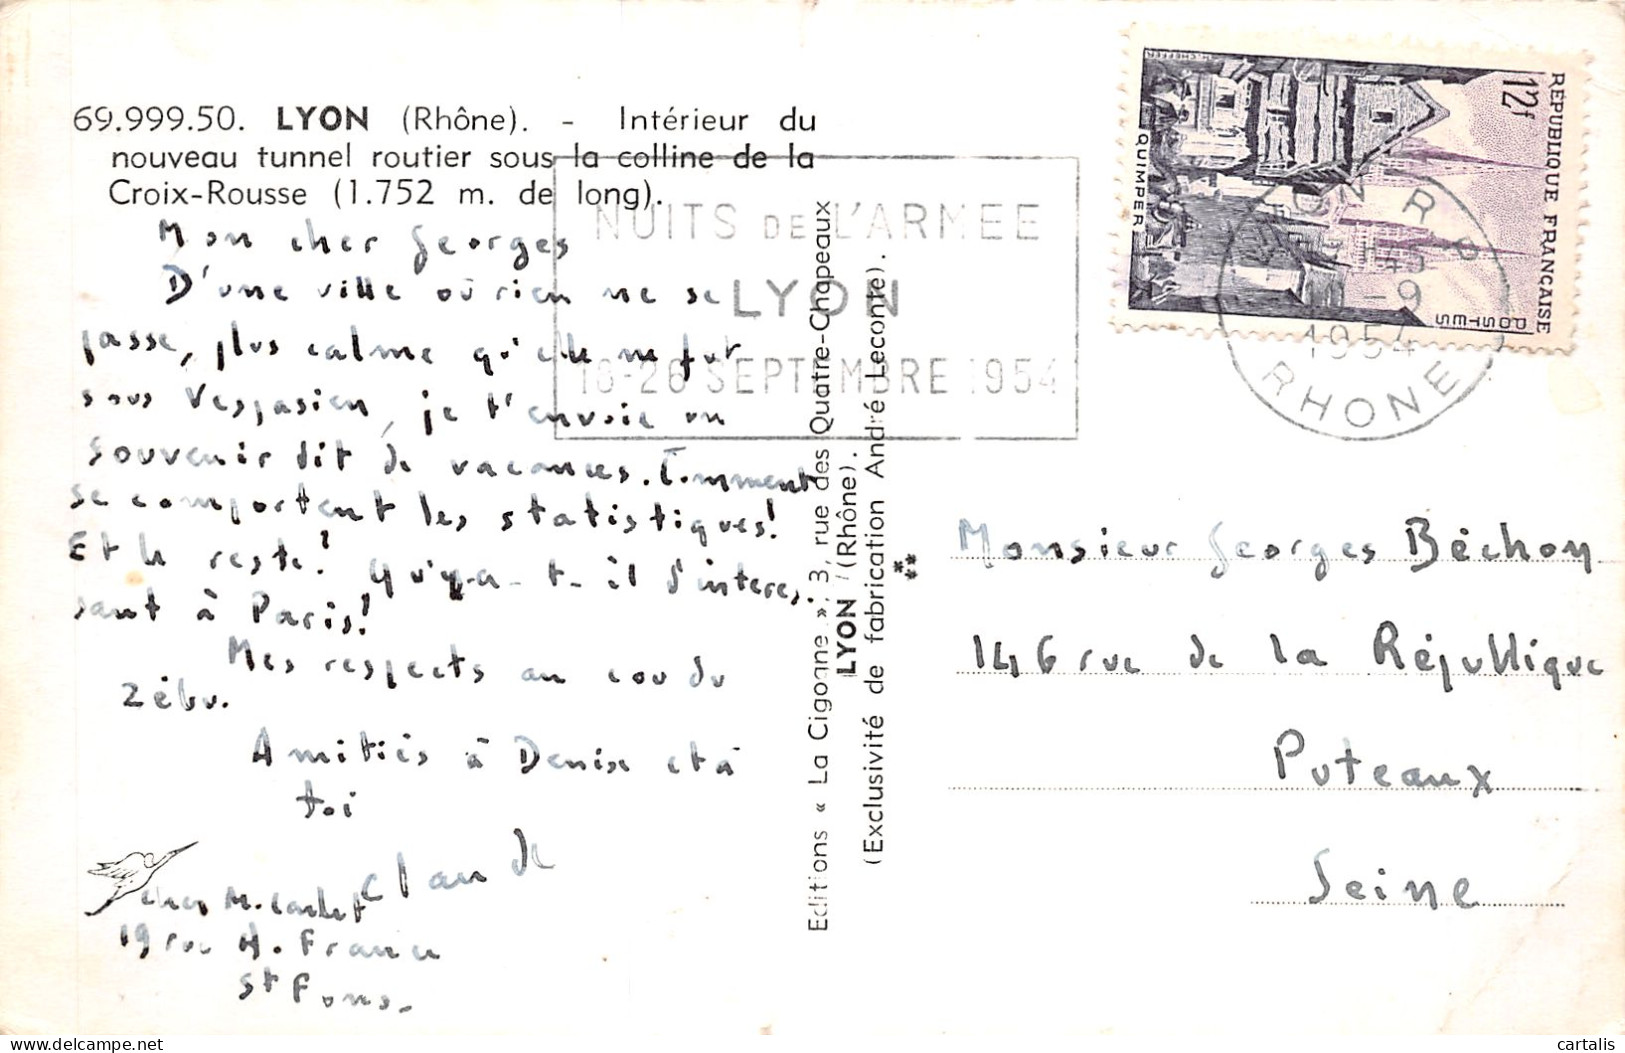 69.999.50. LYON (Rhône). - Intérieur du
nouveau tunnel routier sous la colline de la
Croix-Rousse (1.752 m. de long).
Mon cher Georges
D'une ville où rien ne se
passe, plus calme qu'elle ne fut
sous Vespasien, je t'envoie un
souvenir dit de vacances. Comment
se comportent les statistiques!
Et le reste! Qu'y-a-t-il d'interes.
sant à Paris!
Mes respects au cou du
Zébu.
Amitiés à Denise et à
toi
Claude
chez M.
19 rue A. France
St Fons.
NUITS DE L'ARMEE
LYON
18-26 SEPTEMBRE 1954
Editions « La Cigogne », 3, rue des Quatre-Chapeaux
LYON (Rhône).
(Exclusivité de fabrication André Leconte).
RÉPUBLIQUE FRANÇAISE
12f
POSTES
QUIMPER
LYON R.P.
-9
1954
RHONE
Monsieur Georges Béchon
146 rue de la République
Puteaux
Seine
cartalis